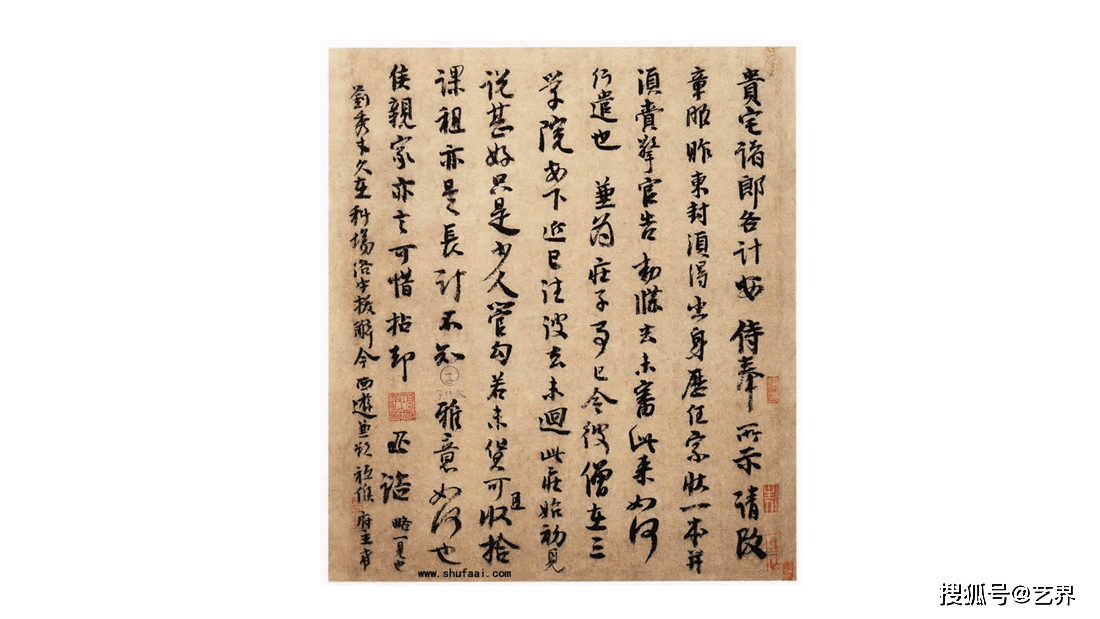 貴宅诸郎各计安 侍奉 所示 请改
章服 昨東封須得出身歷任家狀一本并
須賫擎官告敕牒去未審此来如何
行遣也 兼為莊子事已令彼僧在三
学院安下近已往彼去未迴此莊始初見
说甚好只是少人管勾若未貨可且收拾
課租亦是長計不知 雅意如何也
侯親家亦言可惜拈却 諮
劉秀才久在科場洛中拔解今西遊兼欲祗候府主希
略一見也
www.shufaai.com
搜狐号@艺界